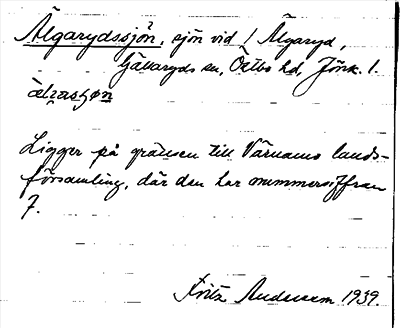 Älgarydssjön, sjön vid / Älgaryd,
Gällaryds sn, Östbo hd, Jönk. l.
Ligger på gränsen till Värnamo lands-
församling, där den har nummersiffran
7.
Fritz Andersson 1939.